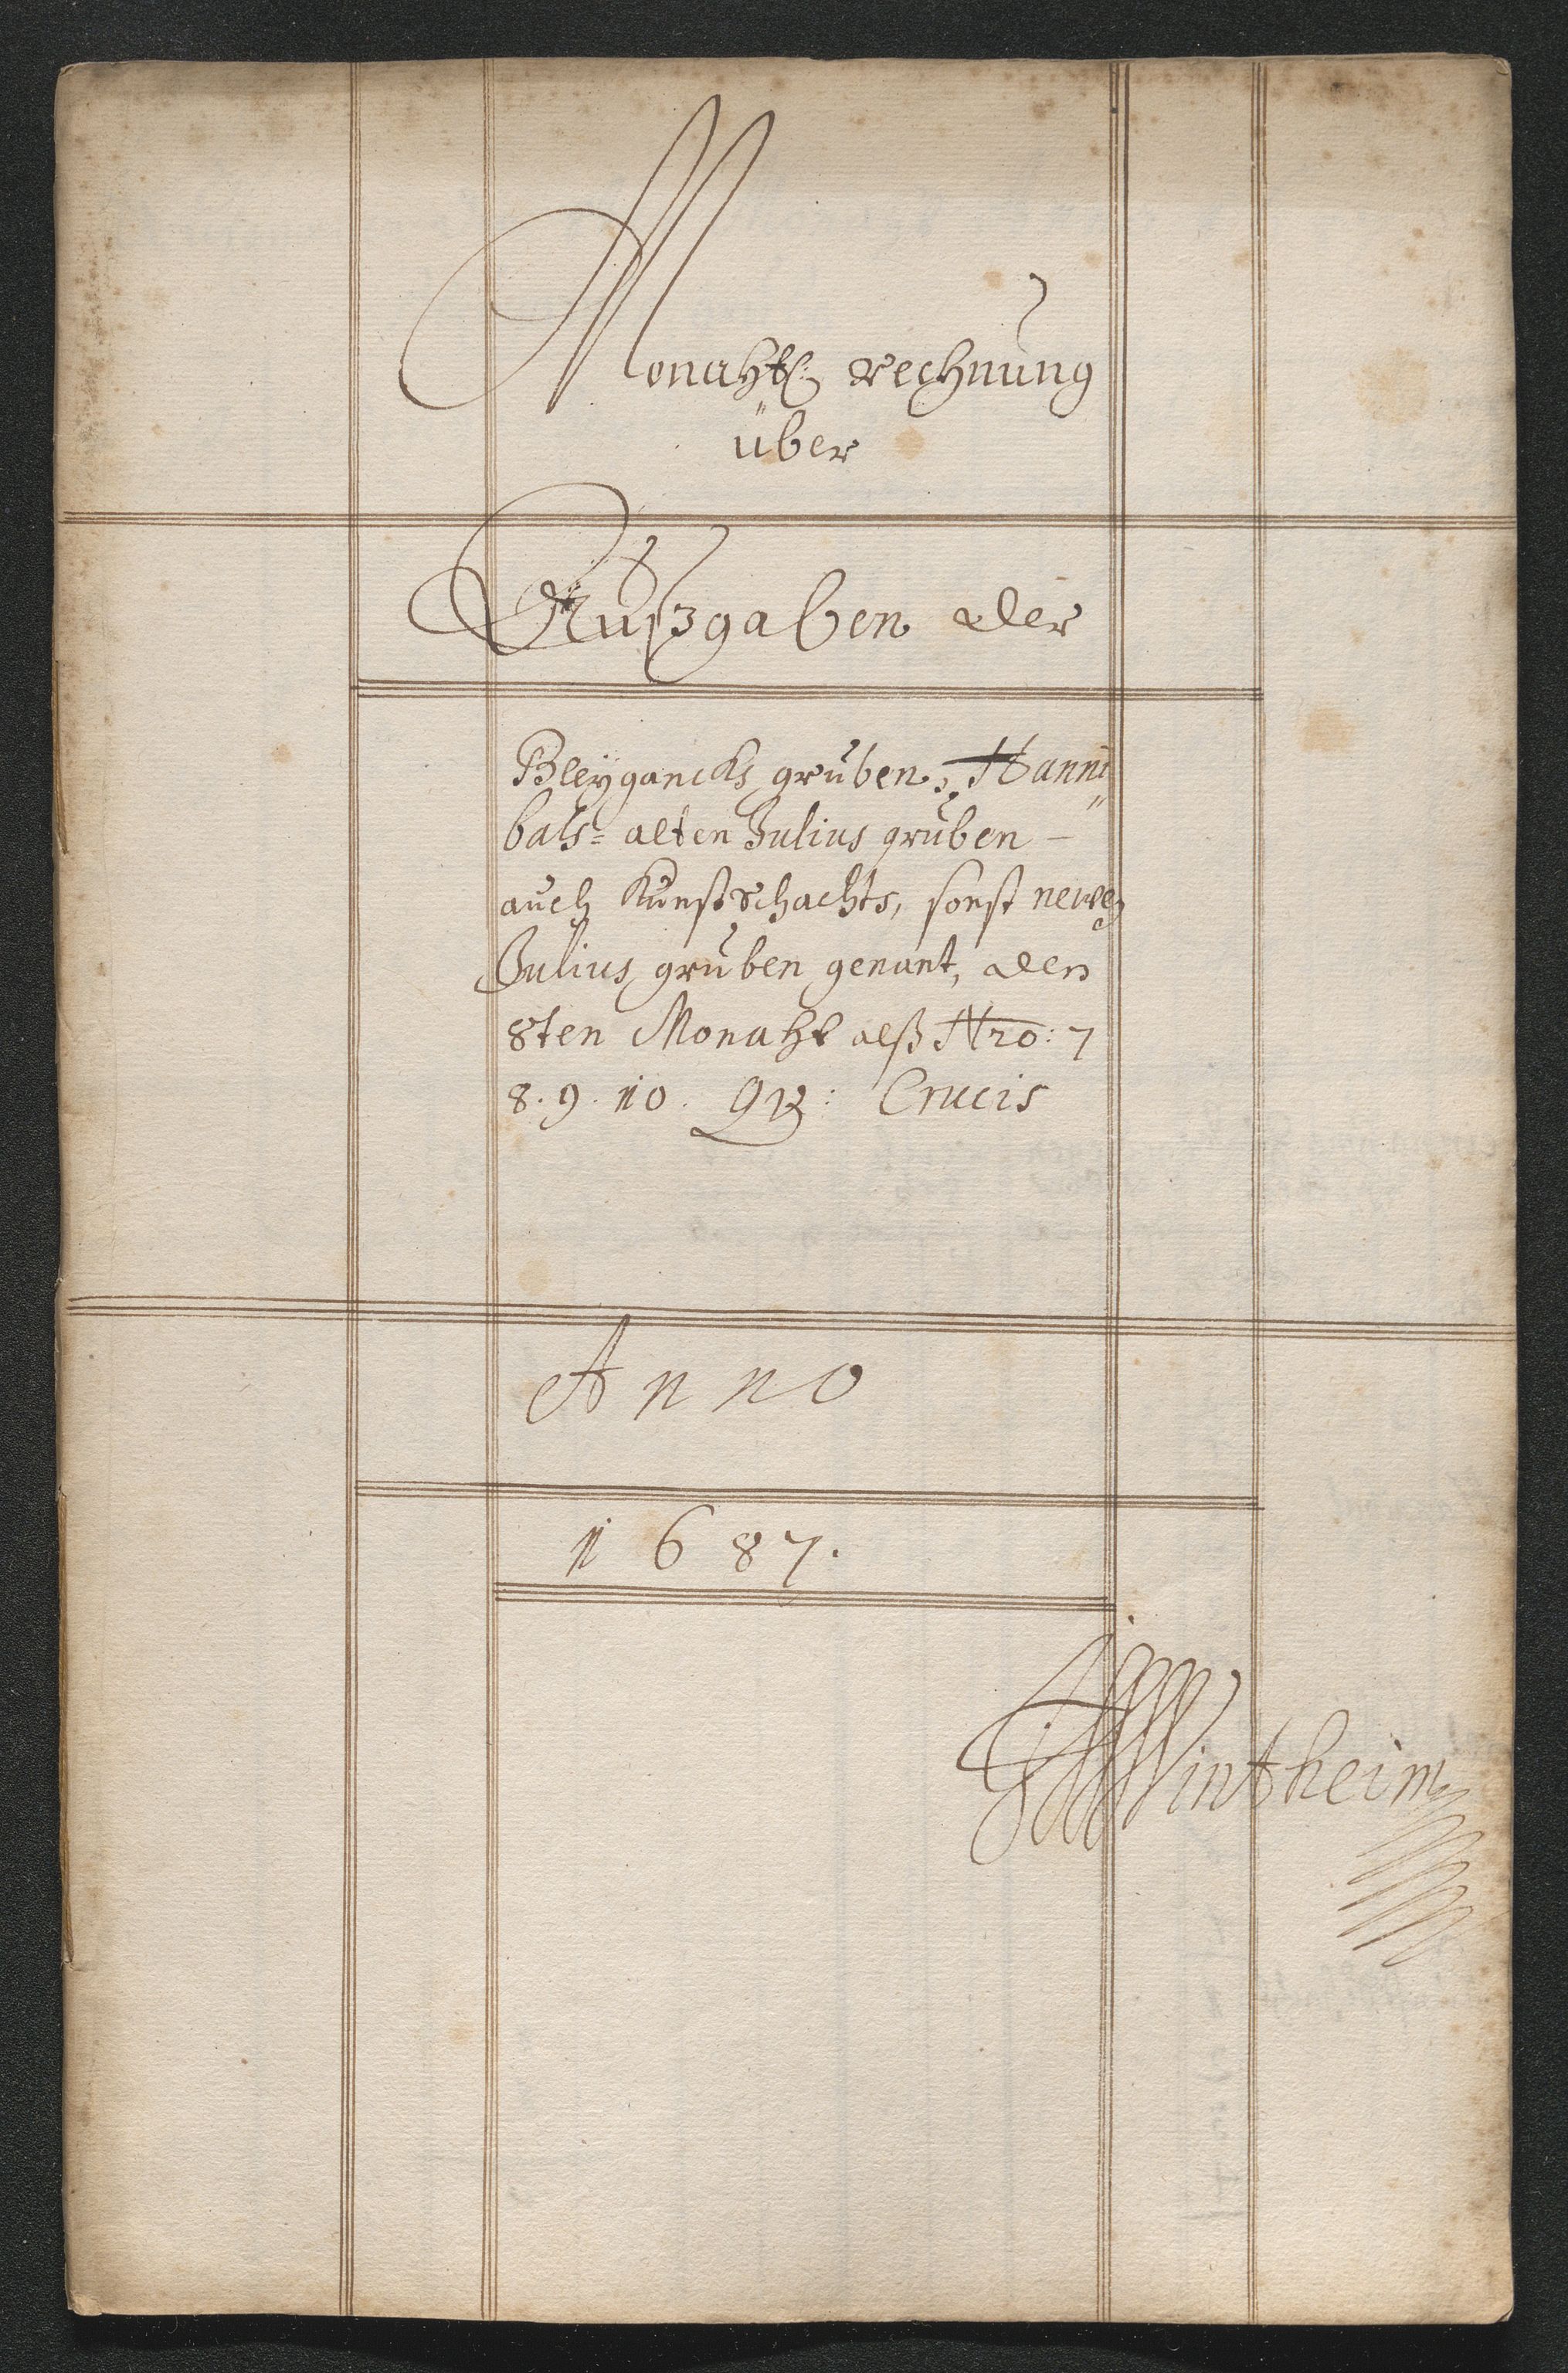 Monahtl: rechnung
über
Außgaben der
Bleygancks gruben, Hanni"
bals= alten Julius gruben -
auch Kunstschachts, sonst newe
Julius gruben genant, den
8ten Monaht alß Nro: 7
8. 9. 10. Qr: Crucis
Anno
1687.
Wintheim